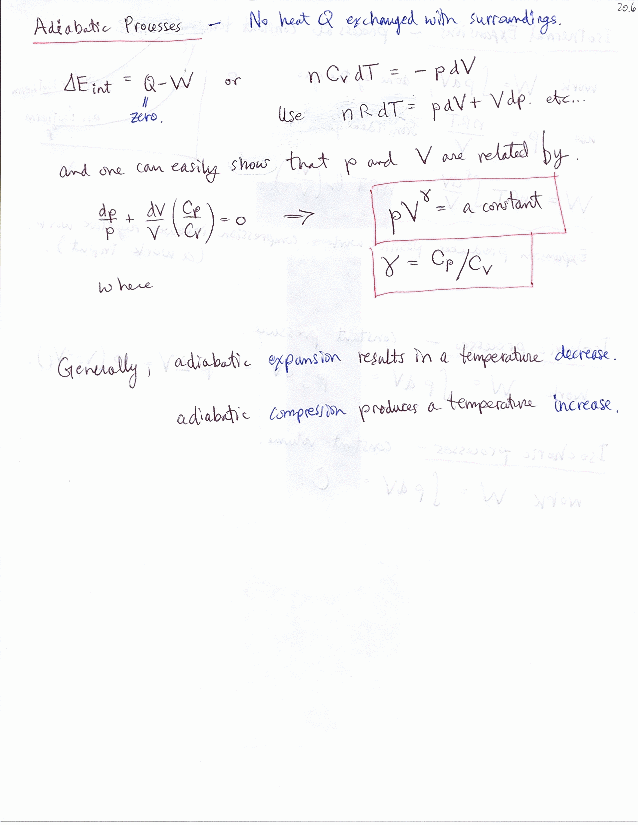 20.6
Adiabatic Processes - No heat Q exchanged with surroundings.
ΔEint = Q - W or n Cv dT = - pdV
zero. Use n R dT = pdV + Vdp. etc...
and one can easily show that p and V are related by.
dp/p + dV/V (Cp/Cv) = 0 ⇒ pV^γ = a constant
where γ = Cp/Cv
Generally, adiabatic expansion results in a temperature decrease.
adiabatic compression produces a temperature increase.